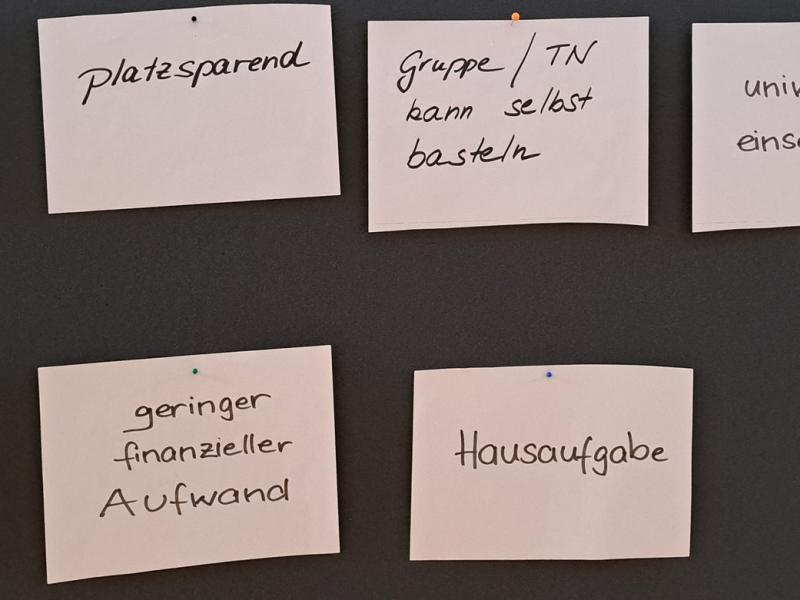 Platzsparend
Gruppe / TN
kann selbst
basteln
geringer
finanzieller
Aufwand
Hausaufgabe